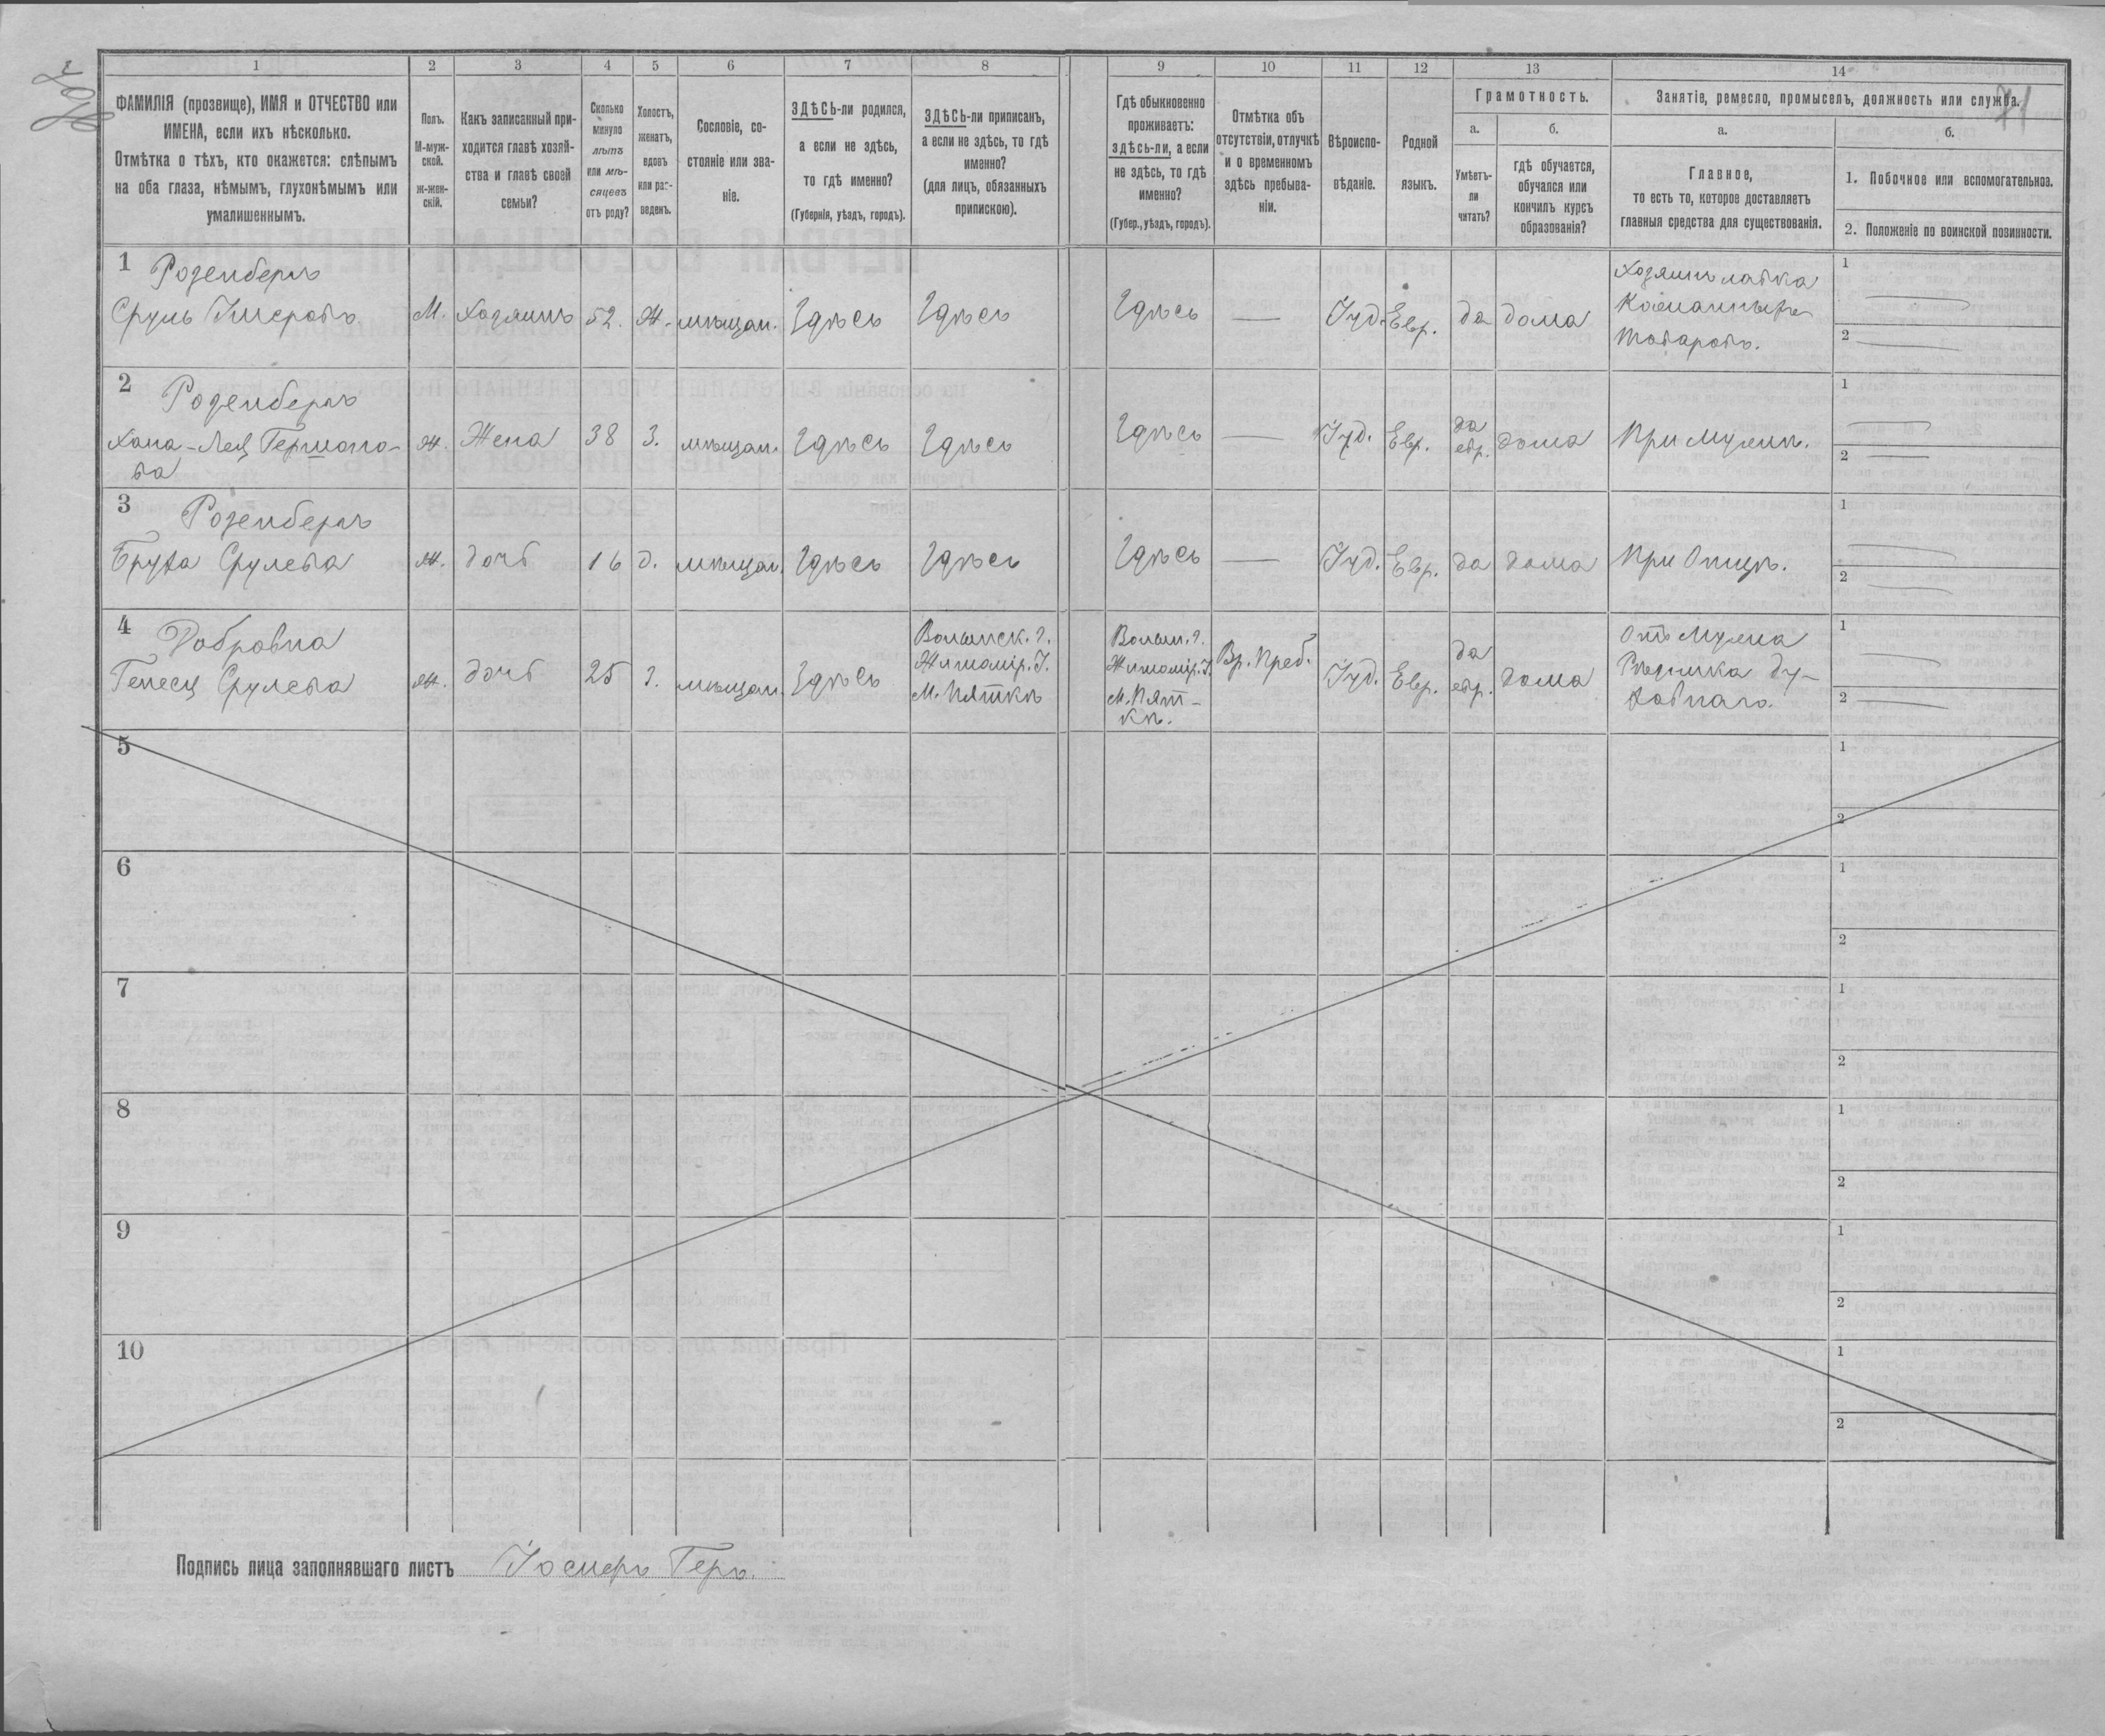 71
1 2 3 4 5 6 7 8 9 10 11 12 13 14
ФАМИЛІЯ (прозвище), ИМЯ и ОТЧЕСТВО или
ИМЕНА, если ихъ нѣсколько.
Отмѣтка о тѣхъ, кто окажется: слѣпымъ
на оба глаза, нѣмымъ, глухонѣмымъ или
умалишеннымъ.
Полъ.
М-муж-
ской.
ж-жен-
скій.
Какъ записанный при-
ходится главѣ хозяй-
ства и главѣ своей
семьи?
Сколько
минуло
лѣтъ
или мѣ-
сяцевъ
отъ роду?
Холостъ,
женатъ,
вдовъ
или раз-
веденъ.
Сословіе, со-
стояніе или зва-
ніе.
ЗДѢСЬ-ли родился,
а если не здѣсь,
то гдѣ именно?
(Губернія, уѣздъ, городъ).
ЗДѢСЬ-ли приписанъ,
а если не здѣсь, то гдѣ
именно?
(для лицъ, обязанныхъ
припискою).
Гдѣ обыкновенно
проживаетъ:
здѣсь-ли, а если
не здѣсь, то гдѣ
именно?
(Губер., уѣздъ, городъ).
Отмѣтка объ
отсутствіи, отлучкѣ
и о временномъ
здѣсь пребыва-
ніи.
Вѣроиспо-
вѣданіе.
Родной
языкъ.
Грамотность.
а.
Умѣетъ-
ли
читать?
б.
гдѣ обучается,
обучался или
кончилъ курсъ
образованія?
Занятіе, ремесло, промыселъ, должность или служба.
а.
Главное,
то есть то, которое доставляетъ
главныя средства для существованія.
б.
1. Побочное или вспомогательное.
2. Положеніе по воинской повинности.
1 Розенбергъ
Сруль М. Хозяинъ 52. Ж. мѣщан. Здѣсь Здѣсь Здѣсь — Іуд. Евр. да дома
Хозяинъ лавка
товаровъ.
1 —
2 —
2 Розенбергъ
Хана-Лея Гершоно-
ва ж. Жена 38 З. мѣщан. Здѣсь Здѣсь Здѣсь — Іуд. Евр. да евр. дома При Мужѣ.
1 —
2 —
3 Розенбергъ
Бруха Срулева ж. дочь 16 д. мѣщан. Здѣсь Здѣсь Здѣсь — Іуд. Евр. да дома При Отцѣ.
1 —
2 —
4 Добровна
Генеся Срулева ж. дочь 25 З. мѣщан. Здѣсь
Волынск. г.
Житомір. У.
М. Пяткѣ
Волын. г.
Житомір. У.
М. Пят-
кѣ.
Вр. Преб. Іуд. Евр. да евр. дома
Отъ Мужа
Рѣзника Ду-
ховнаго.
1 —
2 —
5
1
2
6
1
2
7
1
2
8
1
2
9
1
2
10
1
2
Подпись лица заполнявшаго листъ Іосифъ Геръ.